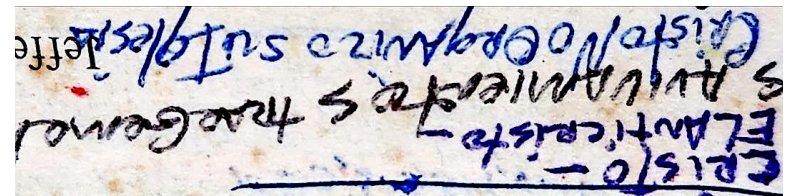 CRISTO —
EL ANTICRISTO -
S AVIVAMIENTOS TRAE Geme
CRISTO NO ORGANIZO SU Iglesia Jeffe